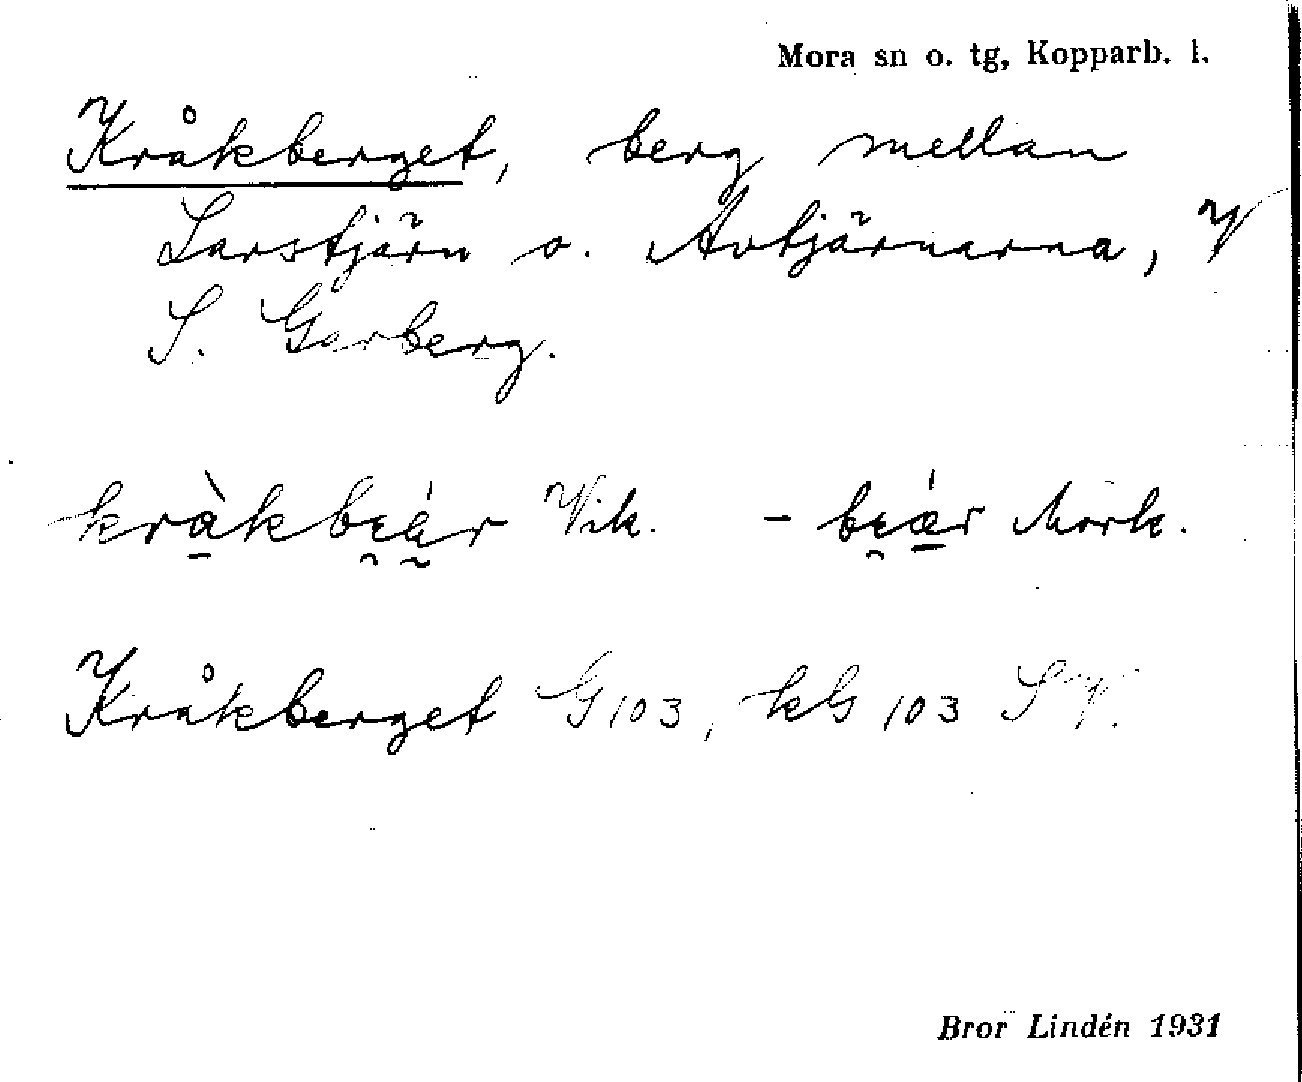 Mora sn o. tg, Kopparb. l.
Kråkberget, berg mellan
Larstjärn o. Avtjärnarna, V
S. Garberg.
kràkbe̯á̰r Vik. - be̯ǽr Mork.
Kråkberget G 103, kG 103 SV.
Bror Lindén 1931